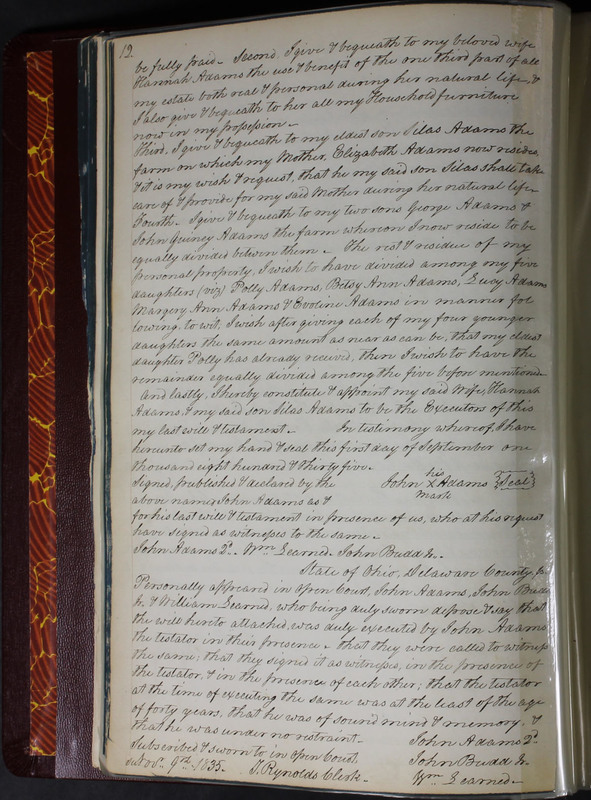 12.
be fully paid. Second, I give & bequeath to my beloved wife
Hannah Adams the use & benefit of the one third part of all
my estate both real & personal during her natural life, &
I also give & bequeath to her all my Household furniture
now in my possession.
Third, I give & bequeath to my eldest son Silas Adams the
farm on which my Mother, Elizabeth Adams now resides,
& it is my wish & request, that he my said son Silas shall take
care of & provide for my said Mother during her natural life.
Fourth. I give & bequeath to my two sons George Adams &
John Quincy Adams the farm whereon I now reside to be
equally divided between them. The rest & residue of my
personal property, I wish to have divided among my five
daughters (viz) Polly Adams, Betsy Ann Adams, Lucy Adams
Margery Ann Adams & Eveline Adams in manner fol
lowing, to wit, I wish after giving each of my four younger
daughters the same amount as near as can be, that my eldest
daughter Polly has already received, then I wish to have the
remainder equally divided among the five before mentioned
And lastly, I hereby constitute & appoint my said Wife, Hannah
Adams, & my said son Silas Adams to be the Executors of this
my last will & testament. In testimony whereof, I have
hereunto set my hand & seal this first day of September one
thousand eight hundred & thirty five.
Signed, published & declared by the
above named John Adams as &
his
John X Adams {Seal}
mark
for his last will & testament in presence of us, who at his request
have signed as witnesses to the same.
John Adams 2d. Wm Learned. John Budd Jr.
State of Ohio, Delaware County, ss
Personally appeared in open Court, John Adams, John Budd
Jr. & William Learned, who being duly sworn depose & say that
the will hereto attached, was duly executed by John Adams
the testator in their presence, that they were called to witness
the same; that they signed it as witnesses, in the presence of
the testator, & in the presence of each other; that the testator
at the time of executing the same was at the least of the age
of forty years, that he was of sound mind & memory, &
that he was under no restraint.
Subscribed & sworn to in open Court
Nov. 9th 1835. T. Reynolds Clerk.
John Adams 2d
John Budd Jr
Wm Learned.